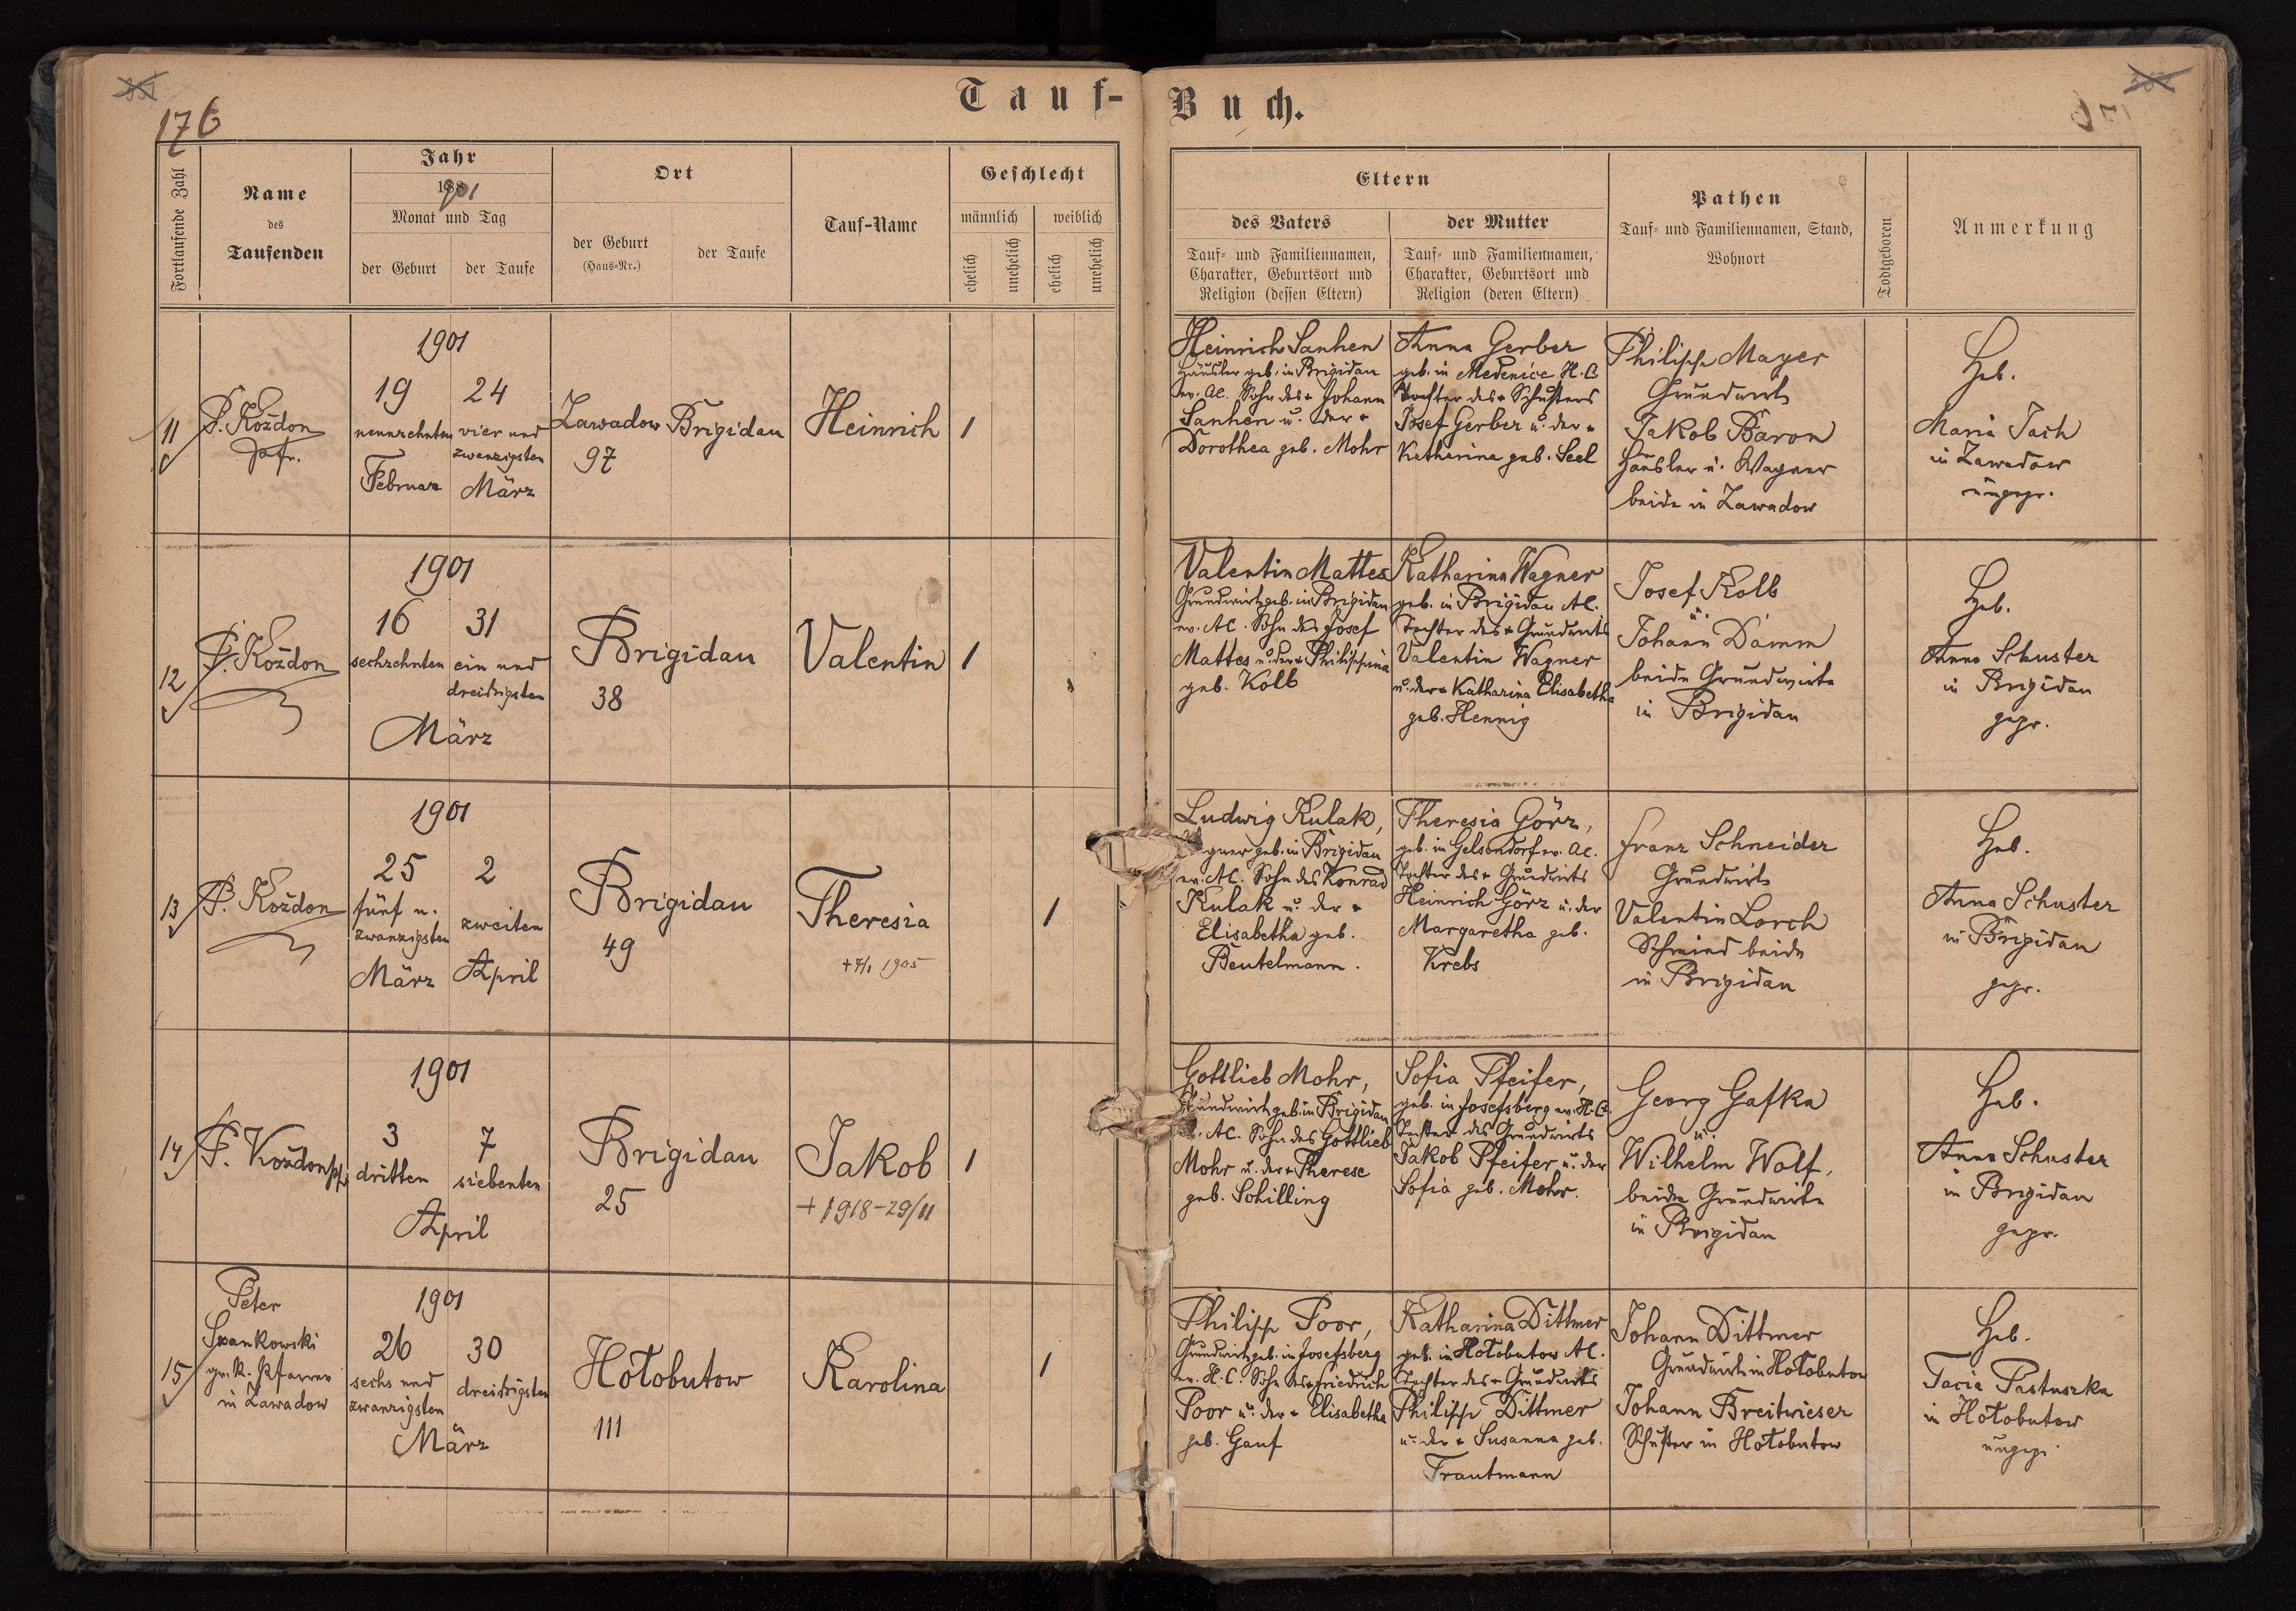 Tauf-Buch.
176
Fortlaufende Zahl
Name
des
Taufenden
Jahr
1901
Monat und Tag
der Geburt
der Taufe
Ort
der Geburt
(Haus-Nr.)
der Taufe
Tauf-Name
Geschlecht
männlich
weiblich
ehelich
unehelich
ehelich
unehelich
Eltern
des Vaters
Tauf- und Familiennamen,
Charakter, Geburtsort und
Religion (dessen Eltern)
der Mutter
Tauf- und Familiennamen,
Charakter, Geburtsort und
Religion (deren Eltern)
Pathen
Tauf- und Familiennamen, Stand,
Wohnort
Todtgeboren
Anmerkung
11
P. Koždon
Pfr.
1901
19
neunzehnten
Februar
24
vier und
zwanzigsten
März
Zawadow
97
Brigidau
Heinrich
1
Heinrich Sanhen
Häusler geb. in Brigidau
ev. AC. Sohn des + Johann
Sanhen u. der +
Dorothea geb. Mohr
Anna Gerber
geb. in Medenice H.C.
Tochter des + Schusters
Josef Gerber u. der +
Katharina geb. Seel
Philipp Mayer
Grundwirt
Jakob Baron
Häusler u. Wagner
beide in Zawadow
Heb.
Maria Jach
in Zawadow
ungepr.
12
P. Koždon
1901
16
sechzehnten
31
ein und
dreißigsten
März
Brigidau
38
Valentin
1
Valentin Mattes
Grundwirt geb. in Brigidau
ev. AC. Sohn des Josef
Mattes u. der + Philippina
geb. Kolb
Katharina Wagner
geb. in Brigidau AC.
Tochter des + Grundwirts
Valentin Wagner
u. der + Katharina Elisabetha
geb. Hennig
Josef Kolb
u.
Johann Damm
beide Grundwirte
in Brigidau
Heb.
Anna Schuster
in Brigidau
gepr.
13
P. Koždon
1901
25
fünf u.
zwanzigsten
März
2
zweiten
April
Brigidau
49
Theresia
1905
1
Ludwig Kulak,
geb. in Brigidau
ev. AC. Sohn des Konrad
Kulak u. der +
Elisabetha geb.
Beutelmann.
Theresia Görz,
geb. in Gelsendorf ev. AC.
Tochter des + Grundwirts
Heinrich Görz u. der
Margaretha geb.
Krebs
Franz Schneider
Grundwirt
Valentin Lorch
Schmied beide
in Brigidau
Heb.
Anna Schuster
in Brigidau
gepr.
14
P. Koždon
1901
3
dritten
7
siebenten
April
Brigidau
25
Jakob
+ 1918-29/11
1
Gottlieb Mohr,
Grundwirt geb. in Brigidau
ev. AC. Sohn des Gottlieb
Mohr u. der + Therese
geb. Schilling
Sofia Pfeifer,
geb. in Josefsberg ev. H.C.
Tochter des Grundwirts
Jakob Pfeifer u. der
Sofia geb. Mohr.
Georg Gafka
u.
Wilhelm Wolf,
beide Grundwirte
in Brigidau
Heb.
Anna Schuster
in Brigidau
gepr.
15
Peter
Szankowski
gr. k. Pfarrer
in Zawadow
1901
26
sechs und
zwanzigsten
30
dreißigsten
März
Hołobutow
111
Karolina
1
Philipp Poor,
Grundwirt geb. in Josefsberg
ev. H.C. Sohn des + Friedrich
Poor u. der + Elisabetha
geb. Gauf
Katharina Dittmer
geb. in Hołobutow AC.
Tochter des + Grundwirts
Philipp Dittmer
u. der + Susanna geb.
Trautmann
Johann Dittmer
Grundwirt in Hołobutow
Johann Breitwieser
Schuster in Hołobutow
Heb.
Tacia Pastuszka
in Hołobutow
ungepr.